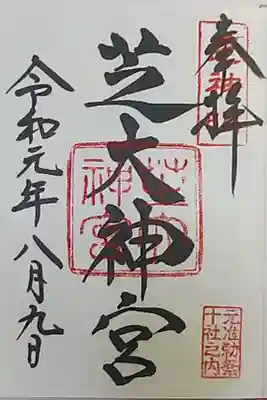 奉拝
芝大神宮
令和元年八月九日
元准勅祭
十社之内